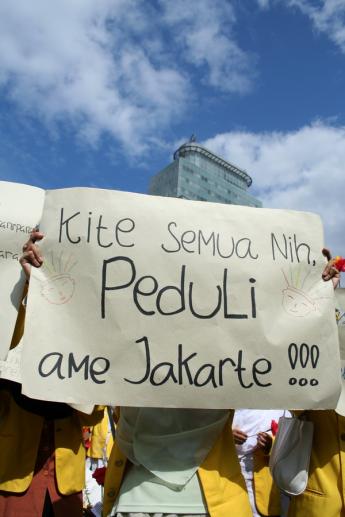 Kite semua Nih,
PeduLi
ame Jakarte !!!